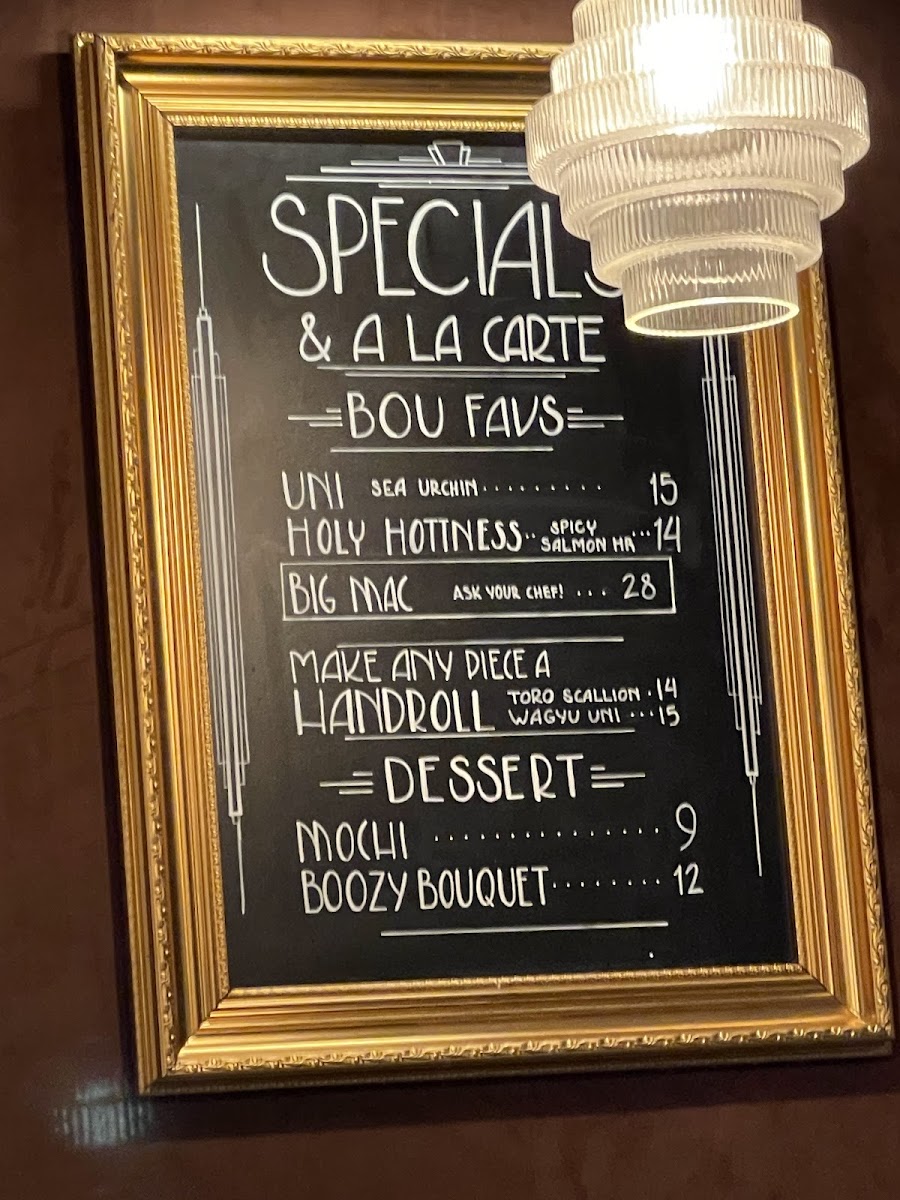 SPECIALS
& A LA CARTE
BOU FAVS
UNI SEA URCHIN ......... 15
HOLY HOTTNESS .. SPICY SALMON HR ... 14
BIG MAC ASK YOUR CHEF! ... 28
MAKE ANY PIECE A
HANDROLL TORO SCALLION . 14
WAGYU UNI ... 15
DESSERT
MOCHI ................ 9
BOOZY BOUQUET ........ 12